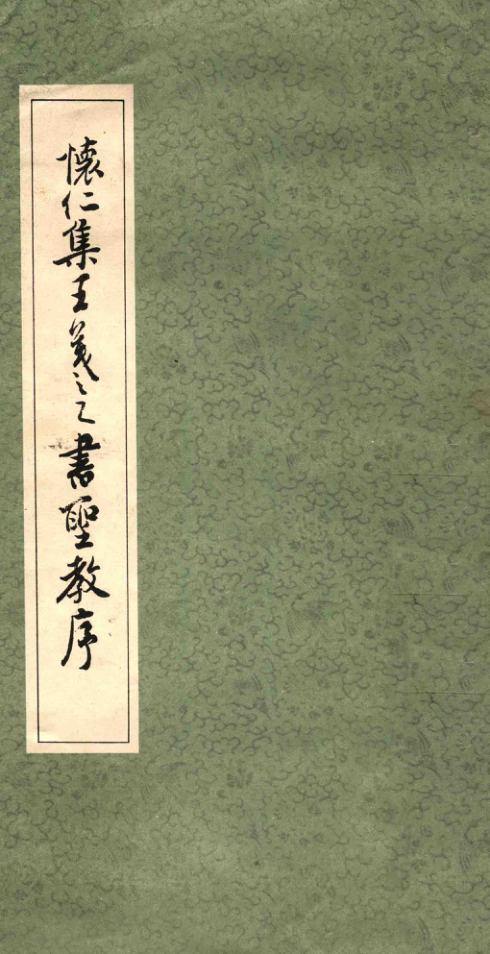 懷仁集王羲之書聖教序